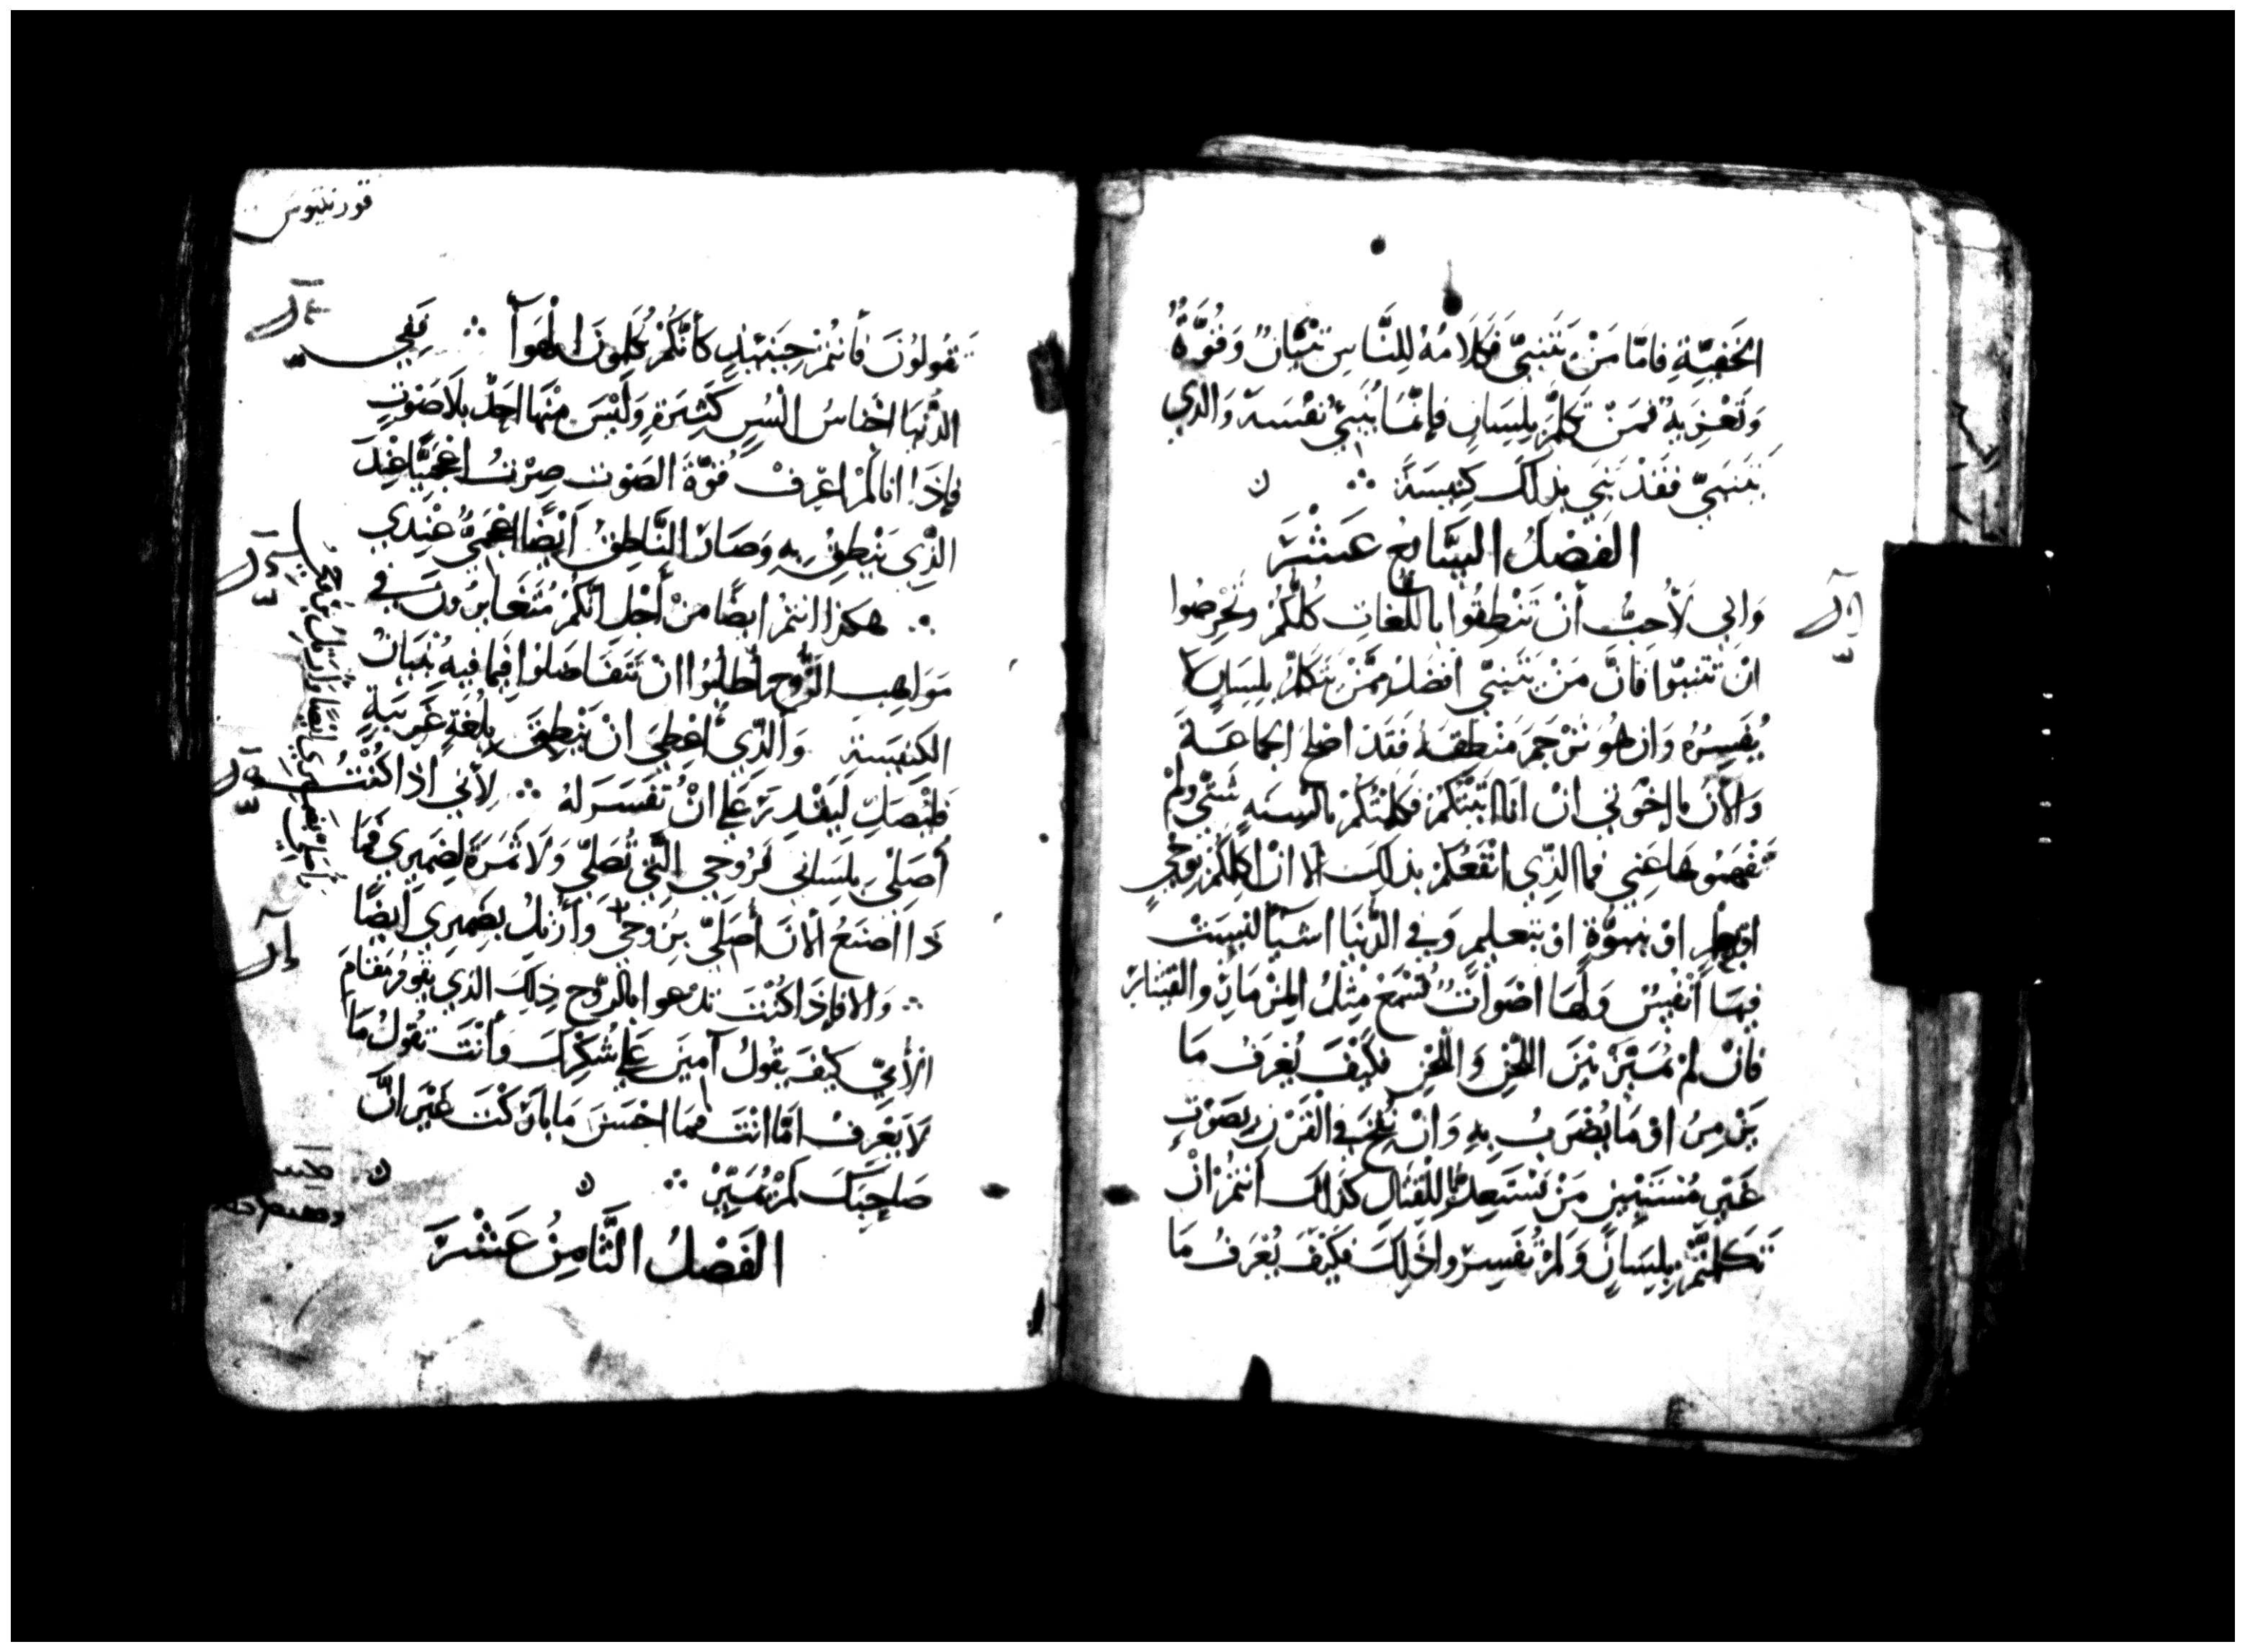 الخَفِيَّةِ فامّا مَنْ يَتَنبيّ فَكَلامُهُ لِلنَّاسِ بُنْيَانٌ وَقُوَّةٌ
وَتَعْزِيةٌ فمَنْ تَكلمَّ بِلِسَانٍ فإنمّا يُبَنيّ نفْسَهُ وَالذي
يَتنبيّ فقَدْ بَنَي بذلكَ كنيسَةً ن
الفَصْلُ السَّابعُ عَشْرَ
وَاني لأُحِبُّ أنْ تَنْطِقُوا باللّغاتِ كُلّكُمْ وَتحْرِصُوا
انْ تتنبوّا فَانَّ مَنْ يَتَنبيّ افضَلُ ممَّنْ يَتكلمُّ بِلِسَانٍ لا
يُفَسِرُهُ وَان هُو تَرْجمَ مَنْطِقهُ فَقَدْ اصْلح الجماعَةَ
وَالانَ يا إخْوَتي انْ انا اتَيْتكُمْ فَكلمْتُكُمْ بالْسِنَةٍ شَتّي وَلمْ
تَفْهَمُوهَا عَنّي فما الذِّي انْفَعُكمْ بذلِكَ الا انْ اكلِّمَكُمْ بِوَحْيٍ
اوْ بِعلمٍ اوْ بِنبوُّةٍ اوْ بتعليمٍ وَفي الدُّنيَا اشيآ لَيْسَتْ
فيهَا أنْفُسٌ وَلَهَا اصْوَاتٌ تُسْمَعُ مِثلُ المِزْمَارِ وَالقيثارِ
فانْ لمْ تُمَيّزْ بَيْنَ اللّحْنِ وَاللّحْنِ فكَيْفَ يُعْرَفُ مَا
يُزَمِرُ اوْ مَا يُضْرَبُ بِهِ وَانْ نُفِخَ في الْقَرْنِ بِصَوْتٍ
غَيْرِ مُسْتَبينٍ مَنْ يَسْتَعِدُّ للقتَالِ كَذلكَ انتُمْ انْ
تَكَلّمْتُمْ بِلِسَانٍ وَلمْ تُفَسِرْوا ذَلِكَ فكَيْفَ يُعْرَفُ مَا
قورنتيوس
تقُولُونَ فأنتُمْ حِينَئِذٍ كأنّكُمْ تُكلِمونَ الْهَوَآ ففي
الدُّنيَا اجْناسُ الْسُنٍ كَثيرَةٍ وَليْسَ مِنْهَا احَدٌ بلاَ صَوْتٍ
فإذَا انا لمْ اعْرِفْ قُوّةَ الصَوْتِ صِرْتُ اعْجَميًّا عِنْدَ
الذِّي يَنْطِقُ بِهِ وَصَارَ النَّاطِقُ أيْضًا اعْجَميٌّ عِنْدي
هكذا انتمْ ايضًا مِنْ أَجْلِ انّكُمْ مُتَغَايرُونَ في
مَوَاهِبِ الرُّوحِ أطلُبُوا انْ تَتَفَاضَلوا فيما فيهِ بُنيَانُ
الكنيسَةِ وَالذّي اعْطِيَ انْ يَنْطِقَ بلُغَةٍ غَريبَةٍ
فليُصَلِّ لِيَقْدِرَ عَلي انْ تُفَسَرَ لهُ لأني اذا كُنْتُ
أُصَلّي بلسَاني فرُوحي التّي تُصَلّي وَلا ثَمَرَةً لضَميري فمَا
ذَا اصْنَعُ الانَ أُصَلّي بِرُوحي وَأُرَتّلُ بضَميري أيضًا
وَالا فإذَا كُنْتَ تدْعوا بالرّوُحِ ذلِكَ الذي يَقوُمُ مقَامَ
الأُمّي كيْفَ يقُولُ آمينَ عَلي شُكْرِكَ وَأنْتَ تقُولُ مَا
لاَ يَعْرِفُ امّا انْتَ فمَا احْسَنَ مَا بارَكْتَ غيْرَ انَّ
صَاحِبَكَ لمْ تُمَيّزْ ن ن
الفَصْلُ الثَّامِنُ عَشْرَ